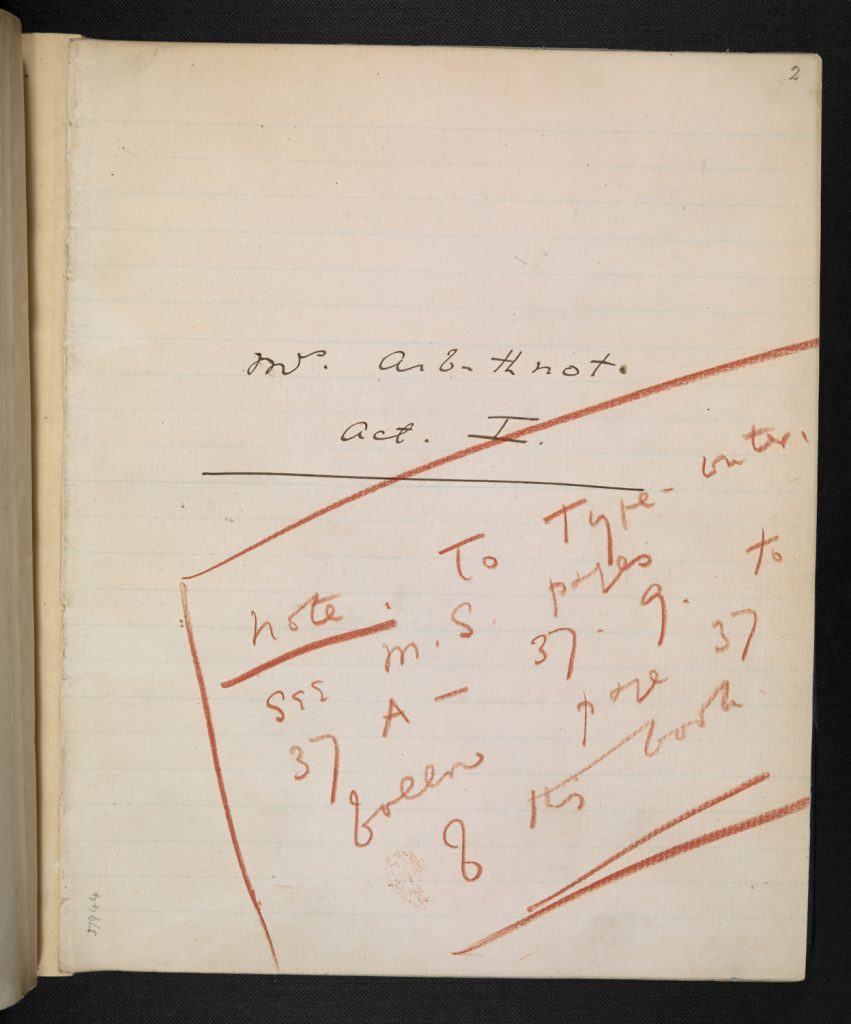 2
Mrs. Arbuthnot.
Act. I.
Note. To Type-writer.
see M.S. pages
37 A – 37. g. to
follow page 37
of this book.
37944